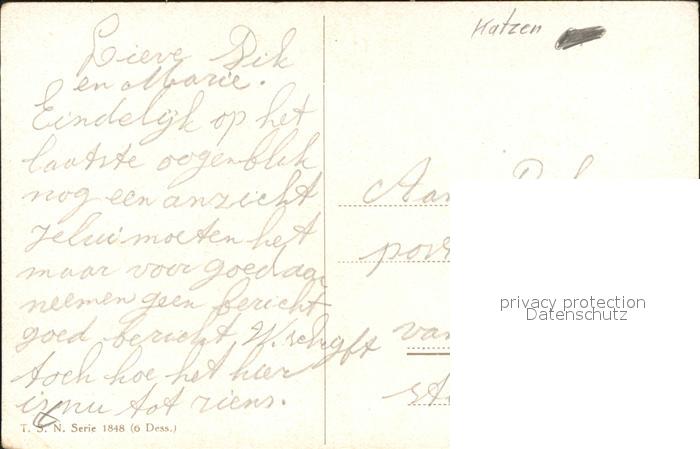 Lieve Dik
en Marie.
Eindelijk op het
laatste oogenblik
nog een anzicht
Jelui moeten het
maar voor goed aan
neemen geen bericht
goed bericht, W. schrijft
toch hoe het hier
is nu tot ziens.
T. S. N. Serie 1848 (6 Dess.)
Katzen
Aan
privacy protection
Datenschutz